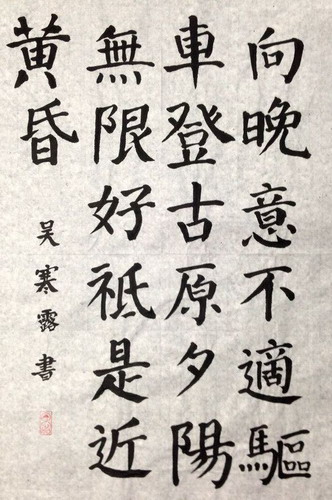 向晚意不適驅
車登古原夕陽
無限好祗是近
黄昏
吴寒露書